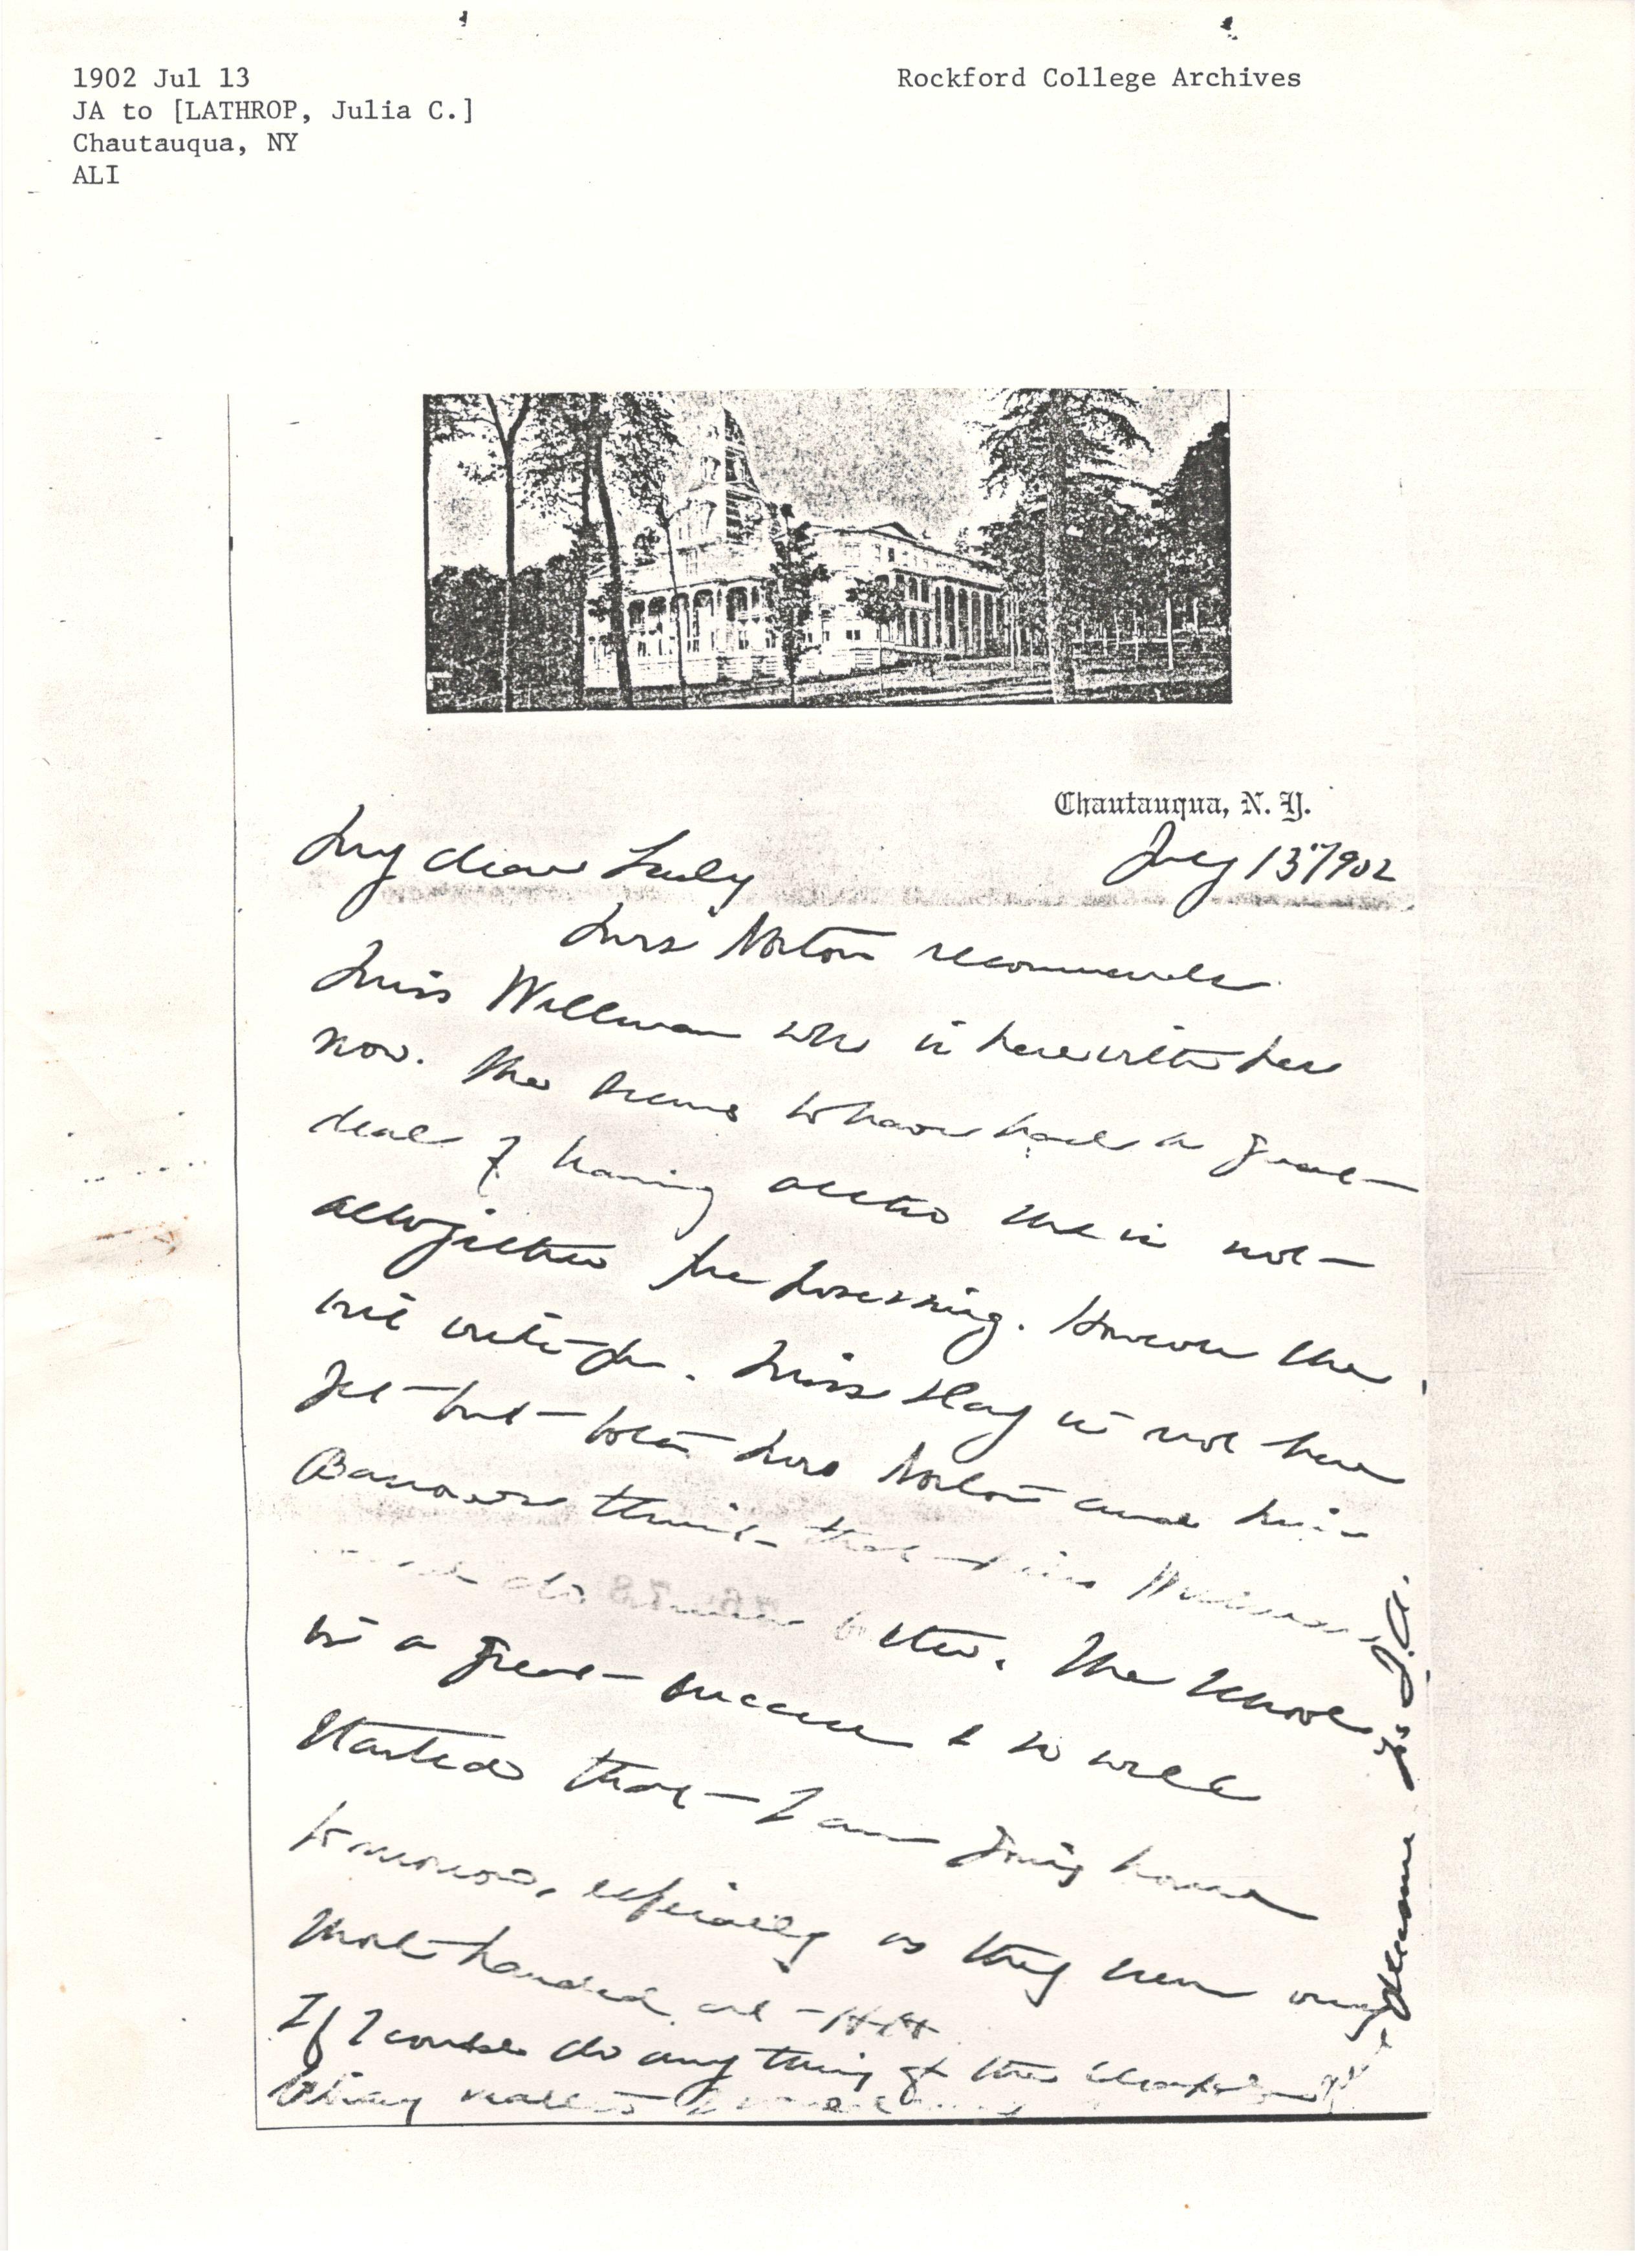 1902 Jul 13
JA to [LATHROP, Julia C.]
Chautauqua, NY
ALI
Rockford College Archives
Chautauqua, N. Y.
July 13" 1902
My dear Lady
Mrs Norton recommends
Miss Wellman who is here with her
now. She seems to have had a great
deal of training altho she is not
altogether prepossessing. However she
will write you. Miss Hay is not here
yet but both Mrs Norton and Miss
Barrows think that Miss
do better. The School
is a great success & so well
started that I am going home
tomorrow, especially as they seem very
short handed at H H
If I could do any thing at the
Bliney
yrs J. A.